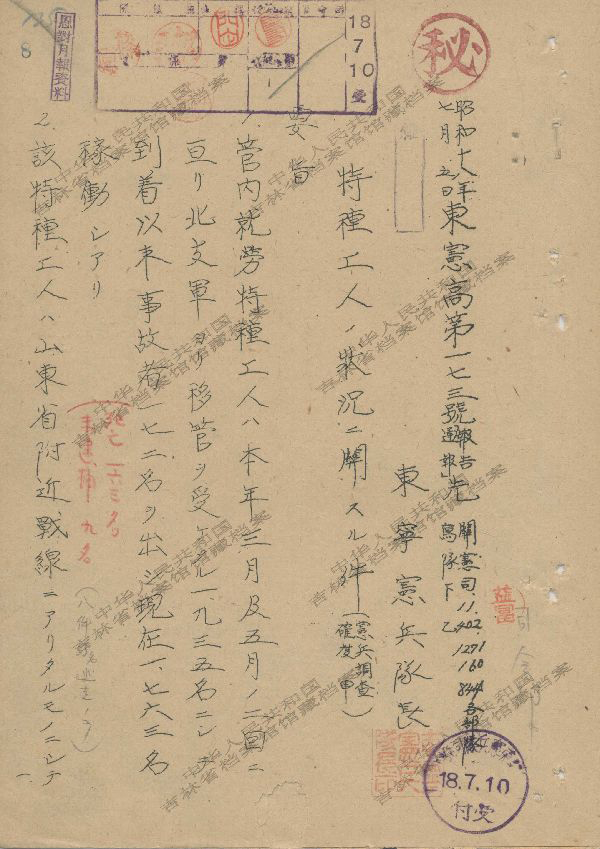 秘
18
7
10
受
思對月報資料
8
昭和十八年
七月五日
東憲高第一七三號
報告
通報
先
關憲司. 11. 402. 1271
160 844 各部隊
隊下 乙
東寧憲兵隊長
特種工人ノ狀況ニ關スル件
憲兵調查
確度甲
要旨
1. 管內就勞特種工人ハ本年三月及五月ノ二回ニ
亘リ北支軍ヨリ移管ヲ受ケタル一、九三五名ニシテ
到着以来事故者一七二名ヲ出シ現在一、七六三名
稼働シアリ
死亡一六三名
逮捕九名
2. 該特種工人ハ山東省附近戰線ニアリタルモノニシテ
一
18.7.10
受付
中华人民共和国
吉林省档案馆馆藏档案